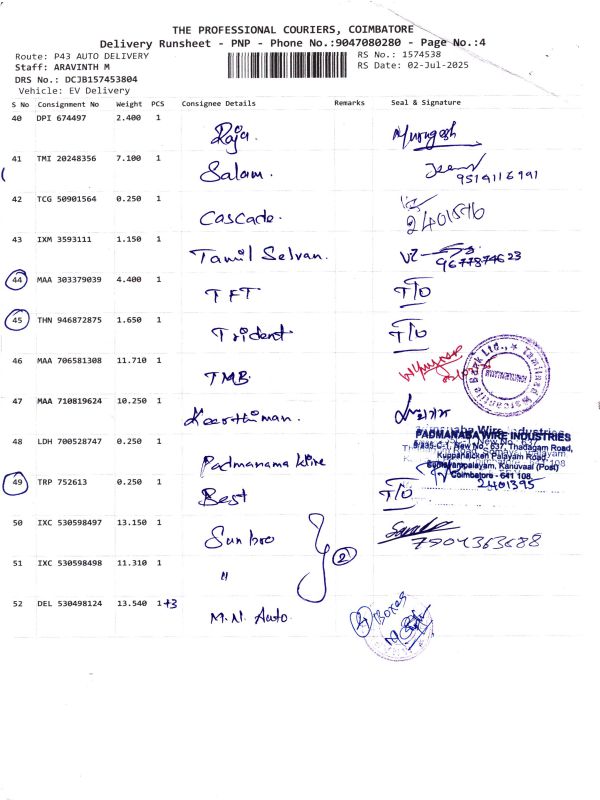 THE PROFESSIONAL COURIERS, COIMBATORE
Delivery Runsheet - PNP - Phone No.:9047080280 - Page No.:4
Route: P43 AUTO DELIVERY
RS No.: 1574538
Staff: ARAVINTH M
RS Date: 02-Jul-2025
DRS No.: DCJB157453804
Vehicle: EV Delivery
S No Consignment No Weight PCS Consignee Details Remarks Seal & Signature
40 DPI 674497 2.400 1 Raja. Murugesh
41 TMI 20248356 7.100 1 Salam.
9519116191
42 TCG 50901564 0.250 1 Cascade.
43 IXM 3593111 1.150 1 Tamil Selvan.
9677874623
44 MAA 303379039 4.400 1 TFT T/O
45 THN 946872875 1.650 1 Trident T/O
46 MAA 706581308 11.710 1 TMB.
47 MAA 710819624 10.250 1 Keerthiman.
48 LDH 700528747 0.250 1 Padmanama Wire
PADMANABA WIRE INDUSTRIES
New No. 637, Thadagam Road,
Kuppanaicken Palayam Road,
Somayampalayam, Kanuvaai (Post)
Coimbatore - 641 108.
2401395
49 TRP 752613 0.250 1 Best T/O
50 IXC 530598497 13.150 1 Sunbro
2
7904363688
51 IXC 530598498 11.310 1 "
52 DEL 530498124 13.540 1+3 M.N. Auto.
4 Boxes